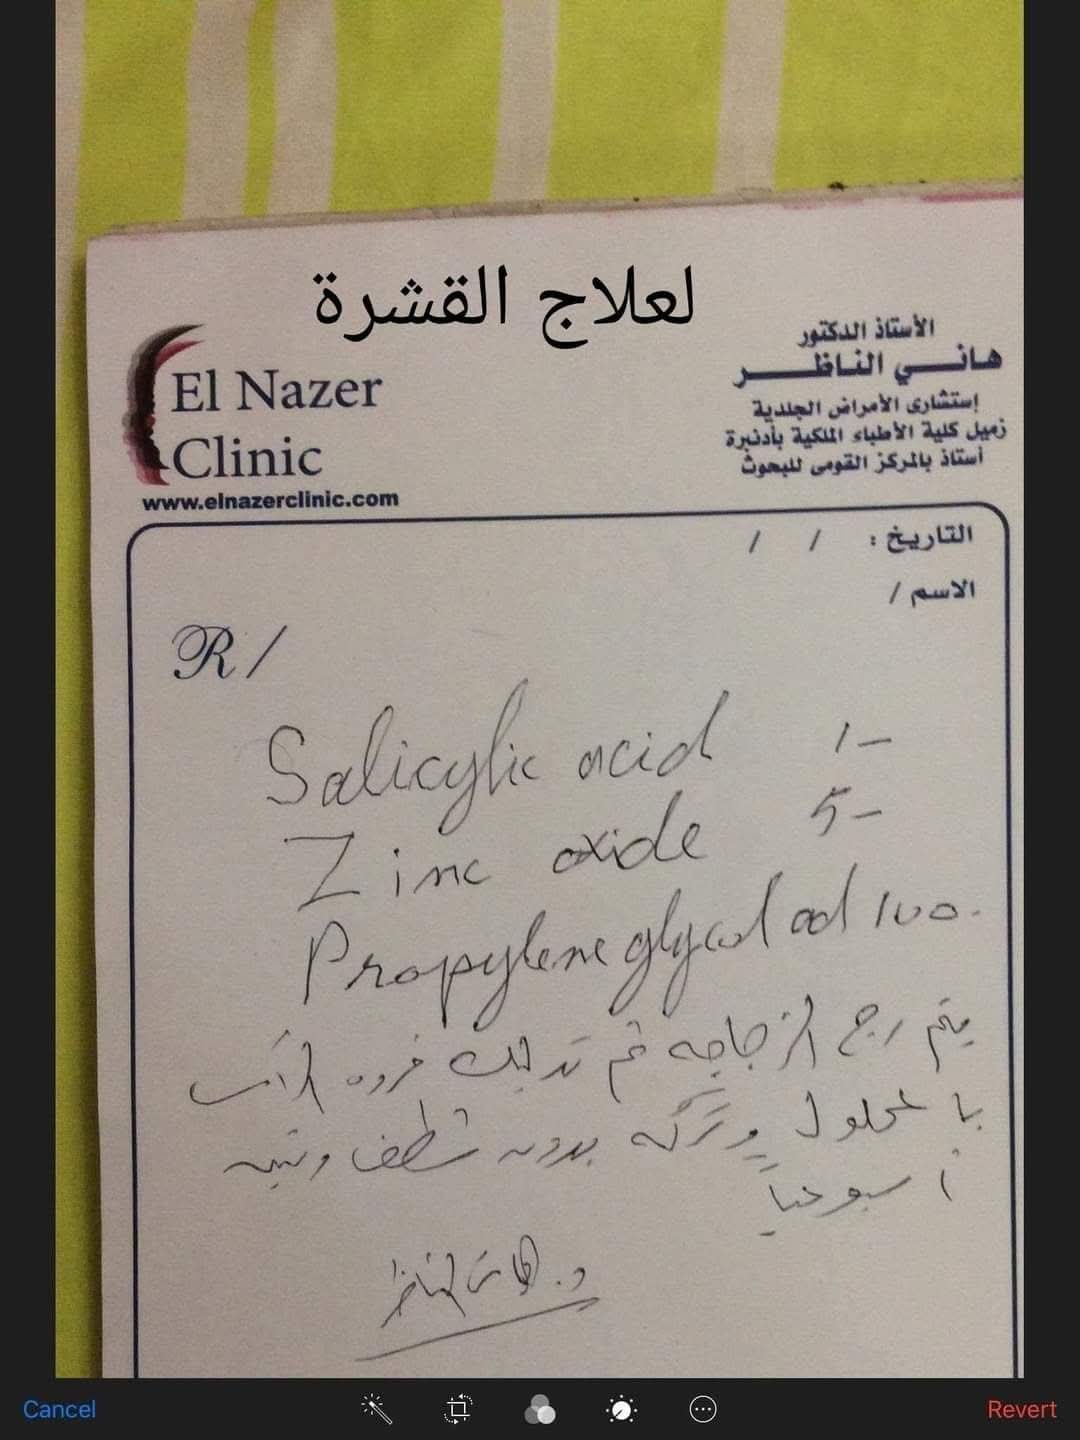 لعلاج القشرة
El Nazer
Clinic
www.elnazerclinic.com
الأستاذ الدكتور
هاني الناظر
إستشارى الأمراض الجلدية
زميل كلية الأطباء الملكية بأدنبرة
أستاذ بالمركز القومى للبحوث
التاريخ : / /
الاسم /
R/
Salicylic acid 1-
Zinc oxide 5-
Propylene glycol ad 100.
يتم رج الزجاجه ثم تدليك فروه الرأس
بالمحلول وتركه بدون شطف وتنبه
أسبوعياً
د. هانى الناظر
Cancel
Revert